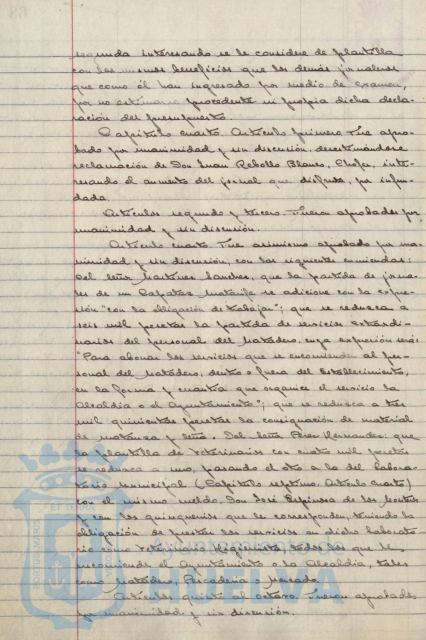 segunda interesando se le considere de plantilla
con los mismos beneficios que los demás jornaleros
que como él han ingresado por medio de examen,
por no estimarse procedente ni propia dicha decla-
ración del presupuesto.
Capítulo cuarto. Artículo primero. Fue apro-
bado por unanimidad y sin discusión, desestimándose
reclamación de Don Juan Rebollo Blanco, Chofer, inte-
resando el aumento del jornal que disfruta, por infun-
dada.
Artículos segundo y tercero. Fueron aprobados por
unanimidad y sin discusión.
Artículo cuarto. Fue asimismo aprobado por una-
nimidad y sin discusión, con las siguientes enmiendas:
Del señor Martínez Sanchez, que la partida de jorna-
les de un Capataz Matarife se adicione con la expre-
sión "con la obligación de trabajar"; que se reduzca a
seis mil pesetas la partida de servicios extraordi-
narios del personal del Matadero, cuya expresión será:
"Para abonar los servicios que se encomienden al per-
sonal del Matadero, dentro o fuera del Establecimiento,
en la forma y cuantía que organice el servicio la
Alcaldía o el Ayuntamiento"; que se reduzca a tres
mil quinientas pesetas la consignación de material
de matanza y leña. Del señor Pérez Hernandez: que
la plantilla de Veterinarios con cuatro mil pesetas
se reduzca a uno, pasando el otro a la del labora-
torio municipal (Capítulo septimo. Artículo cuarto)
con el mismo sueldo. Don José Espinosa de los Monteros
y con los quinquenios que le correspondan, teniendo la
obligación de prestar los servicios en dicho laborato-
rio como Veterinario Higienista, todos los que le
encomiende el Ayuntamiento o la Alcaldía, tales
como Matadero, Pescadería o Mercado.
Artículos quinto al octavo. Fueron aprobados
por unanimidad y sin discusión.
PORTUS MARIS ET TERRAE
HUELVA